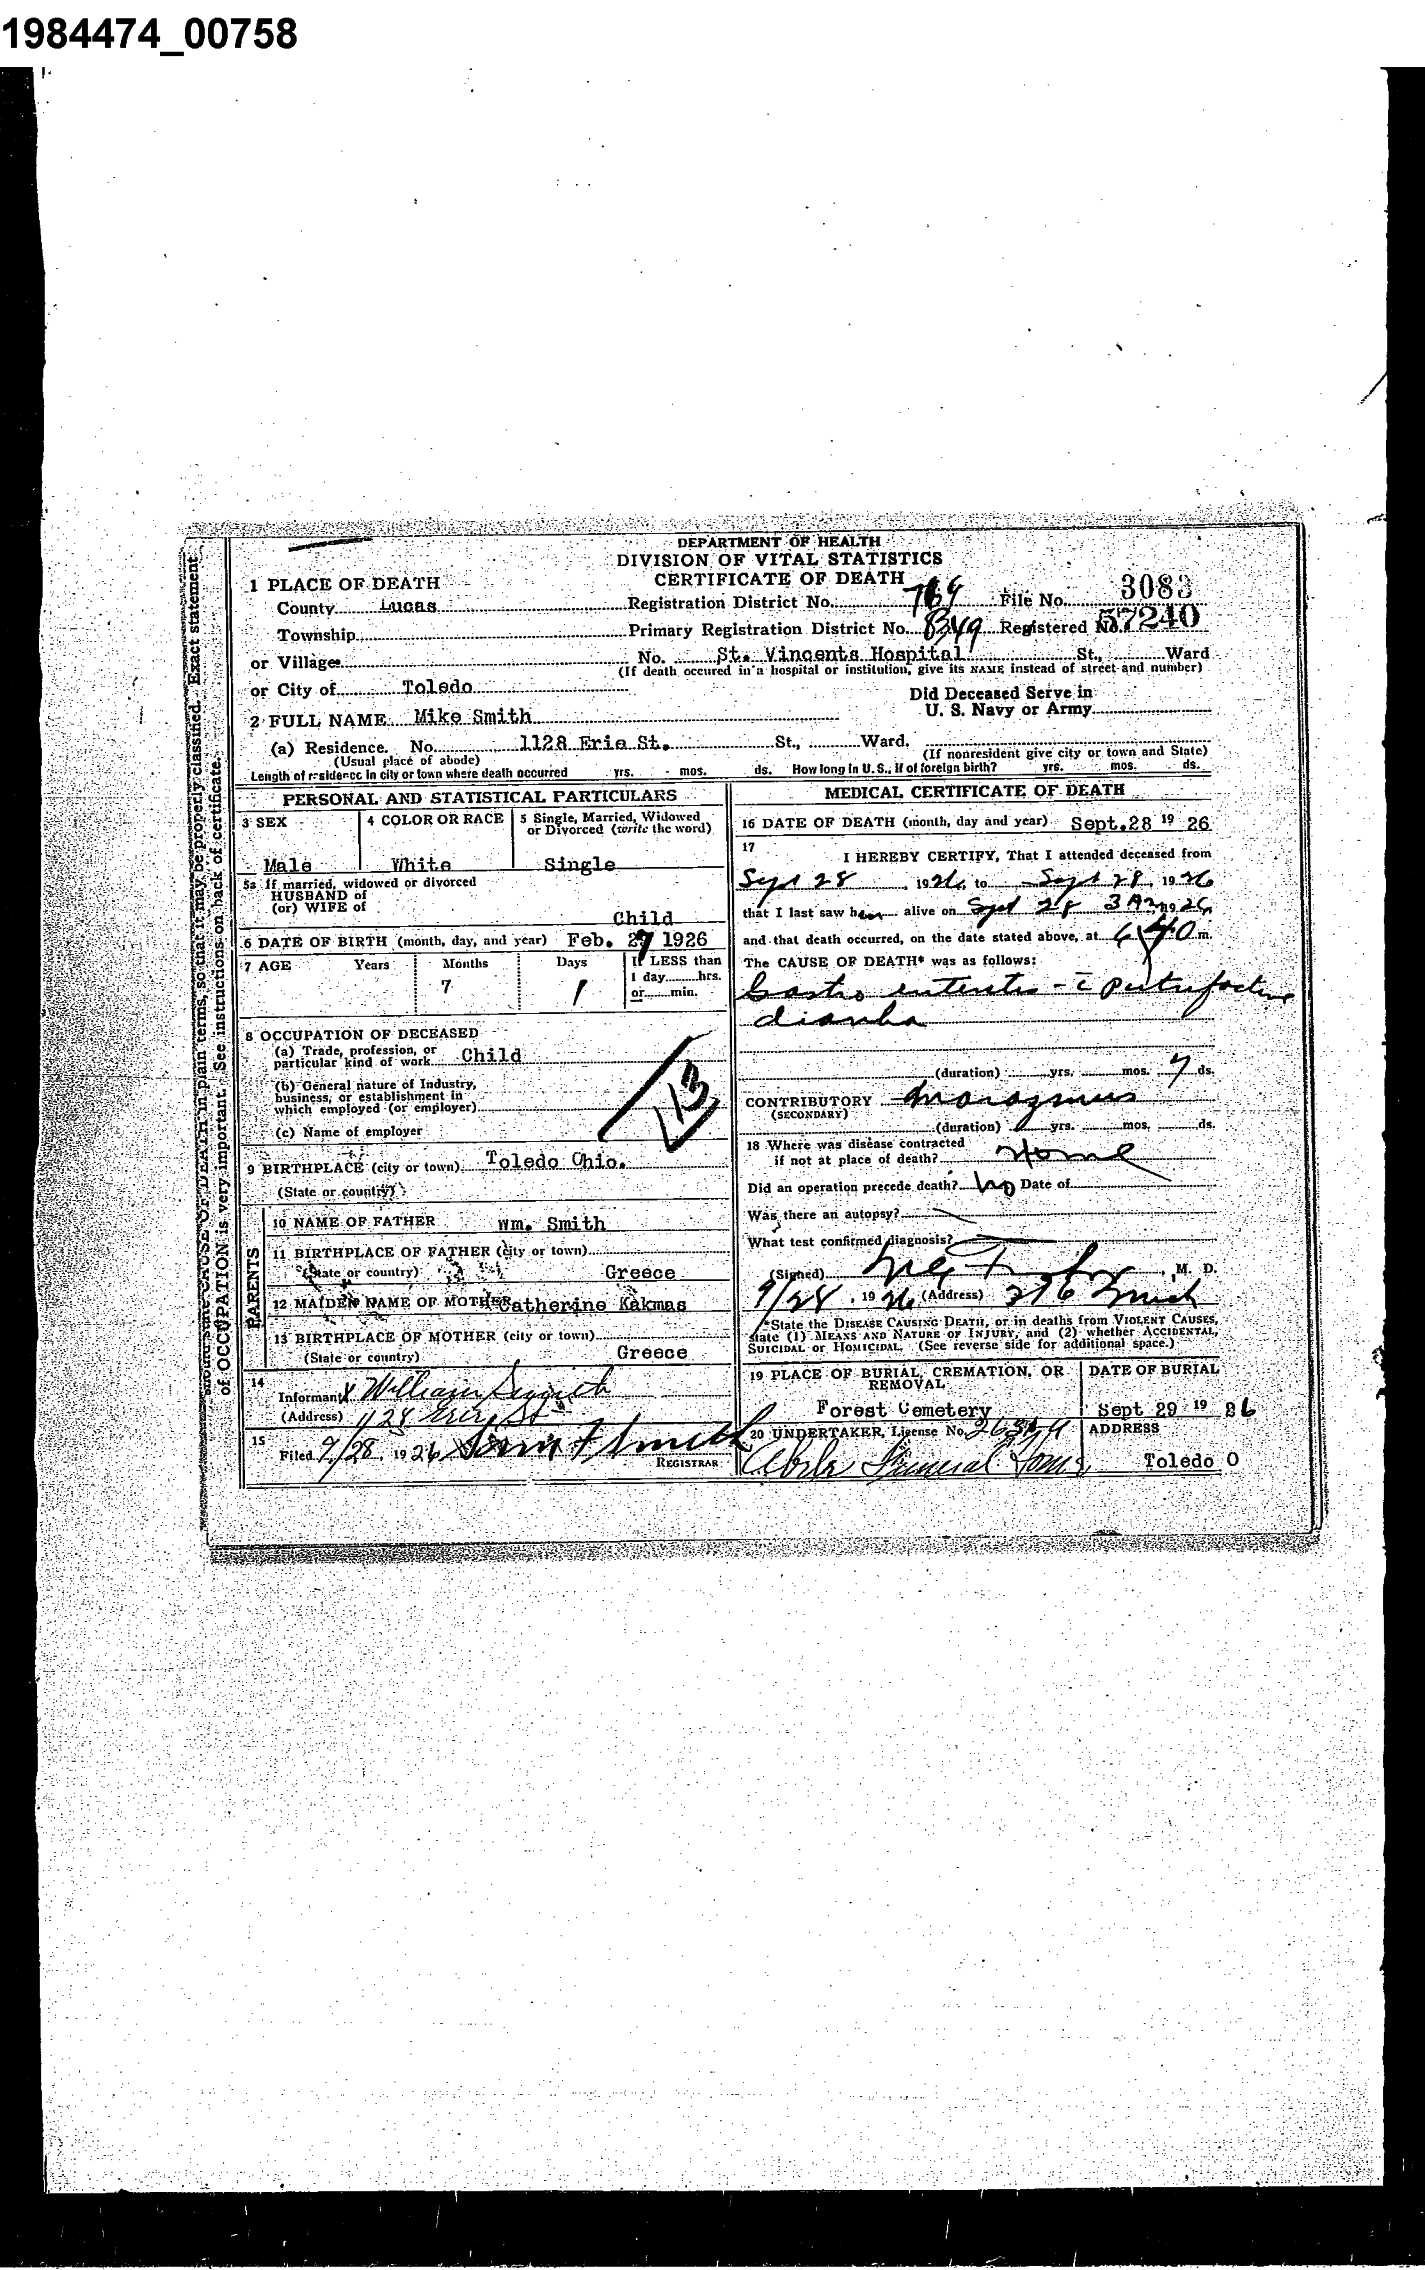 1984474_00758
DEPARTMENT OF HEALTH
DIVISION OF VITAL STATISTICS
CERTIFICATE OF DEATH
1 PLACE OF DEATH
County Lucas Registration District No. File No. 3083
Township Primary Registration District No. Registered No. 57240
or Village No. St. Vincents Hospital St., Ward
(If death occured in a hospital or institution, give its NAME instead of street and number)
or City of Toledo
Did Deceased Serve in
U. S. Navy or Army
2 FULL NAME Mike Smith
(a) Residence. No. 1128 Erie St. St., Ward.
(Usual place of abode) (If nonresident give city or town and State)
Length of residence in city or town where death occurred yrs. mos. ds. How long in U. S., if of foreign birth? yrs. mos. ds.
PERSONAL AND STATISTICAL PARTICULARS
3 SEX 4 COLOR OR RACE 5 Single, Married, Widowed
or Divorced (write the word)
Male White Single
5a If married, widowed or divorced
HUSBAND of
(or) WIFE of
Child
6 DATE OF BIRTH (month, day, and year) Feb. 27 1926
7 AGE Years Months Days If LESS than
1 day hrs.
7 1 or min.
8 OCCUPATION OF DECEASED
(a) Trade, profession, or
particular kind of work Child
(b) General nature of Industry,
business, or establishment in
which employed (or employer)
(c) Name of employer
113
9 BIRTHPLACE (city or town) Toledo Ohio.
(State or country)
PARENTS
10 NAME OF FATHER Wm. Smith
11 BIRTHPLACE OF FATHER (city or town)
(State or country) Greece
12 MAIDEN NAME OF MOTHER Catherine Kakmas
13 BIRTHPLACE OF MOTHER (city or town)
(State or country) Greece
14
Informant X William Smith
(Address) 1128 Erie St
15
Filed 9/28, 1926 Smith
REGISTRAR
MEDICAL CERTIFICATE OF DEATH
16 DATE OF DEATH (month, day and year) Sept. 28 19 26
17
I HEREBY CERTIFY, That I attended deceased from
Sept 28, 1926, to Sept 28, 1926
that I last saw h alive on Sept 28 3 AM 1926,
and that death occurred, on the date stated above, at 6 40 m.
The CAUSE OF DEATH* was as follows:
Gastro enteritis - c̄ putrefactive
diarrhea
(duration) yrs. mos. 7 ds.
CONTRIBUTORY Marasmus
(SECONDARY)
(duration) yrs. mos. ds.
18 Where was disease contracted
if not at place of death? Home
Did an operation precede death? No Date of
Was there an autopsy?
What test confirmed diagnosis?
(Signed) , M. D.
9/28, 1926 (Address) 316
*State the DISEASE CAUSING DEATH, or in deaths from VIOLENT CAUSES,
state (1) MEANS AND NATURE OF INJURY, and (2) whether ACCIDENTAL,
SUICIDAL or HOMICIDAL. (See reverse side for additional space.)
19 PLACE OF BURIAL, CREMATION, OR
REMOVAL
DATE OF BURIAL
Forest Cemetery Sept 29 19 26
20 UNDERTAKER, License No. ADDRESS
Funeral Home Toledo O
of OCCUPATION is very important. See instructions on back of certificate.
should state CAUSE OF DEATH in plain terms, so that it may be properly classified. Exact statement